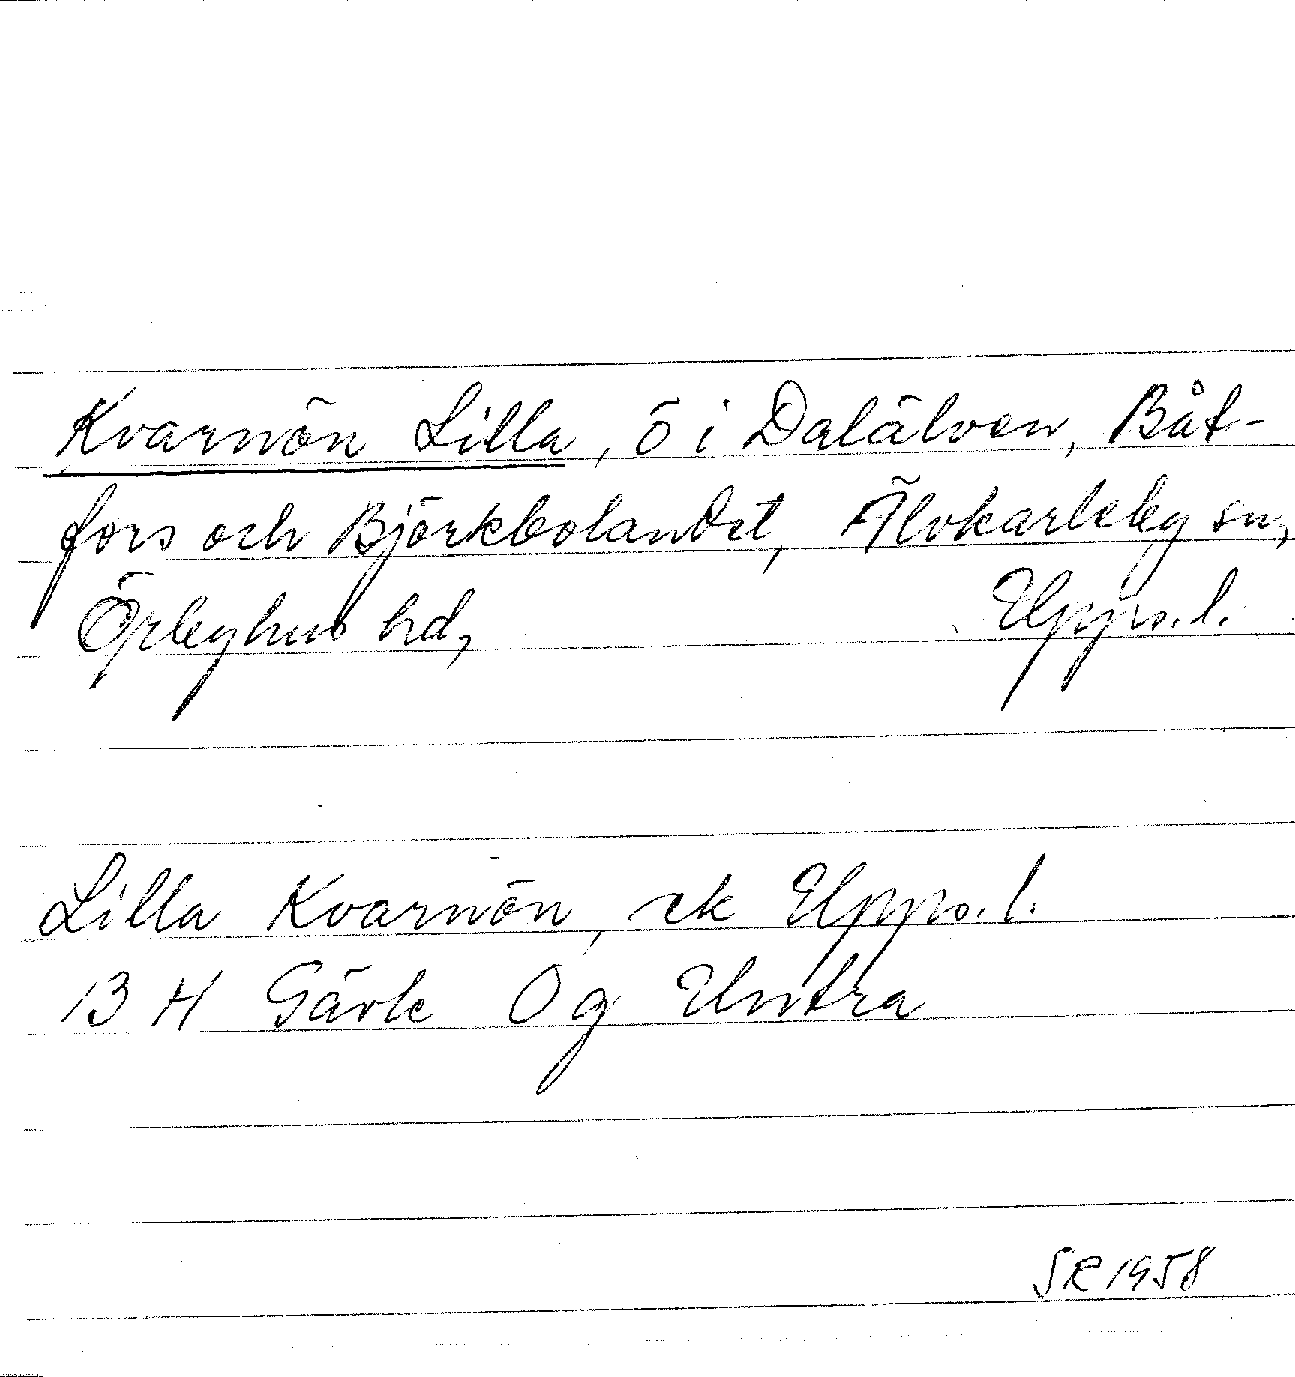 Kvarnön Lilla, ö i Dalälven, Båt-
fors och Björkbolandet, Älvkarleby sn,
Örbyhus hd, Upps. l.
Lilla Kvarnön, ek Upps. l.
13 H Gävle O g Untra
SR 1958